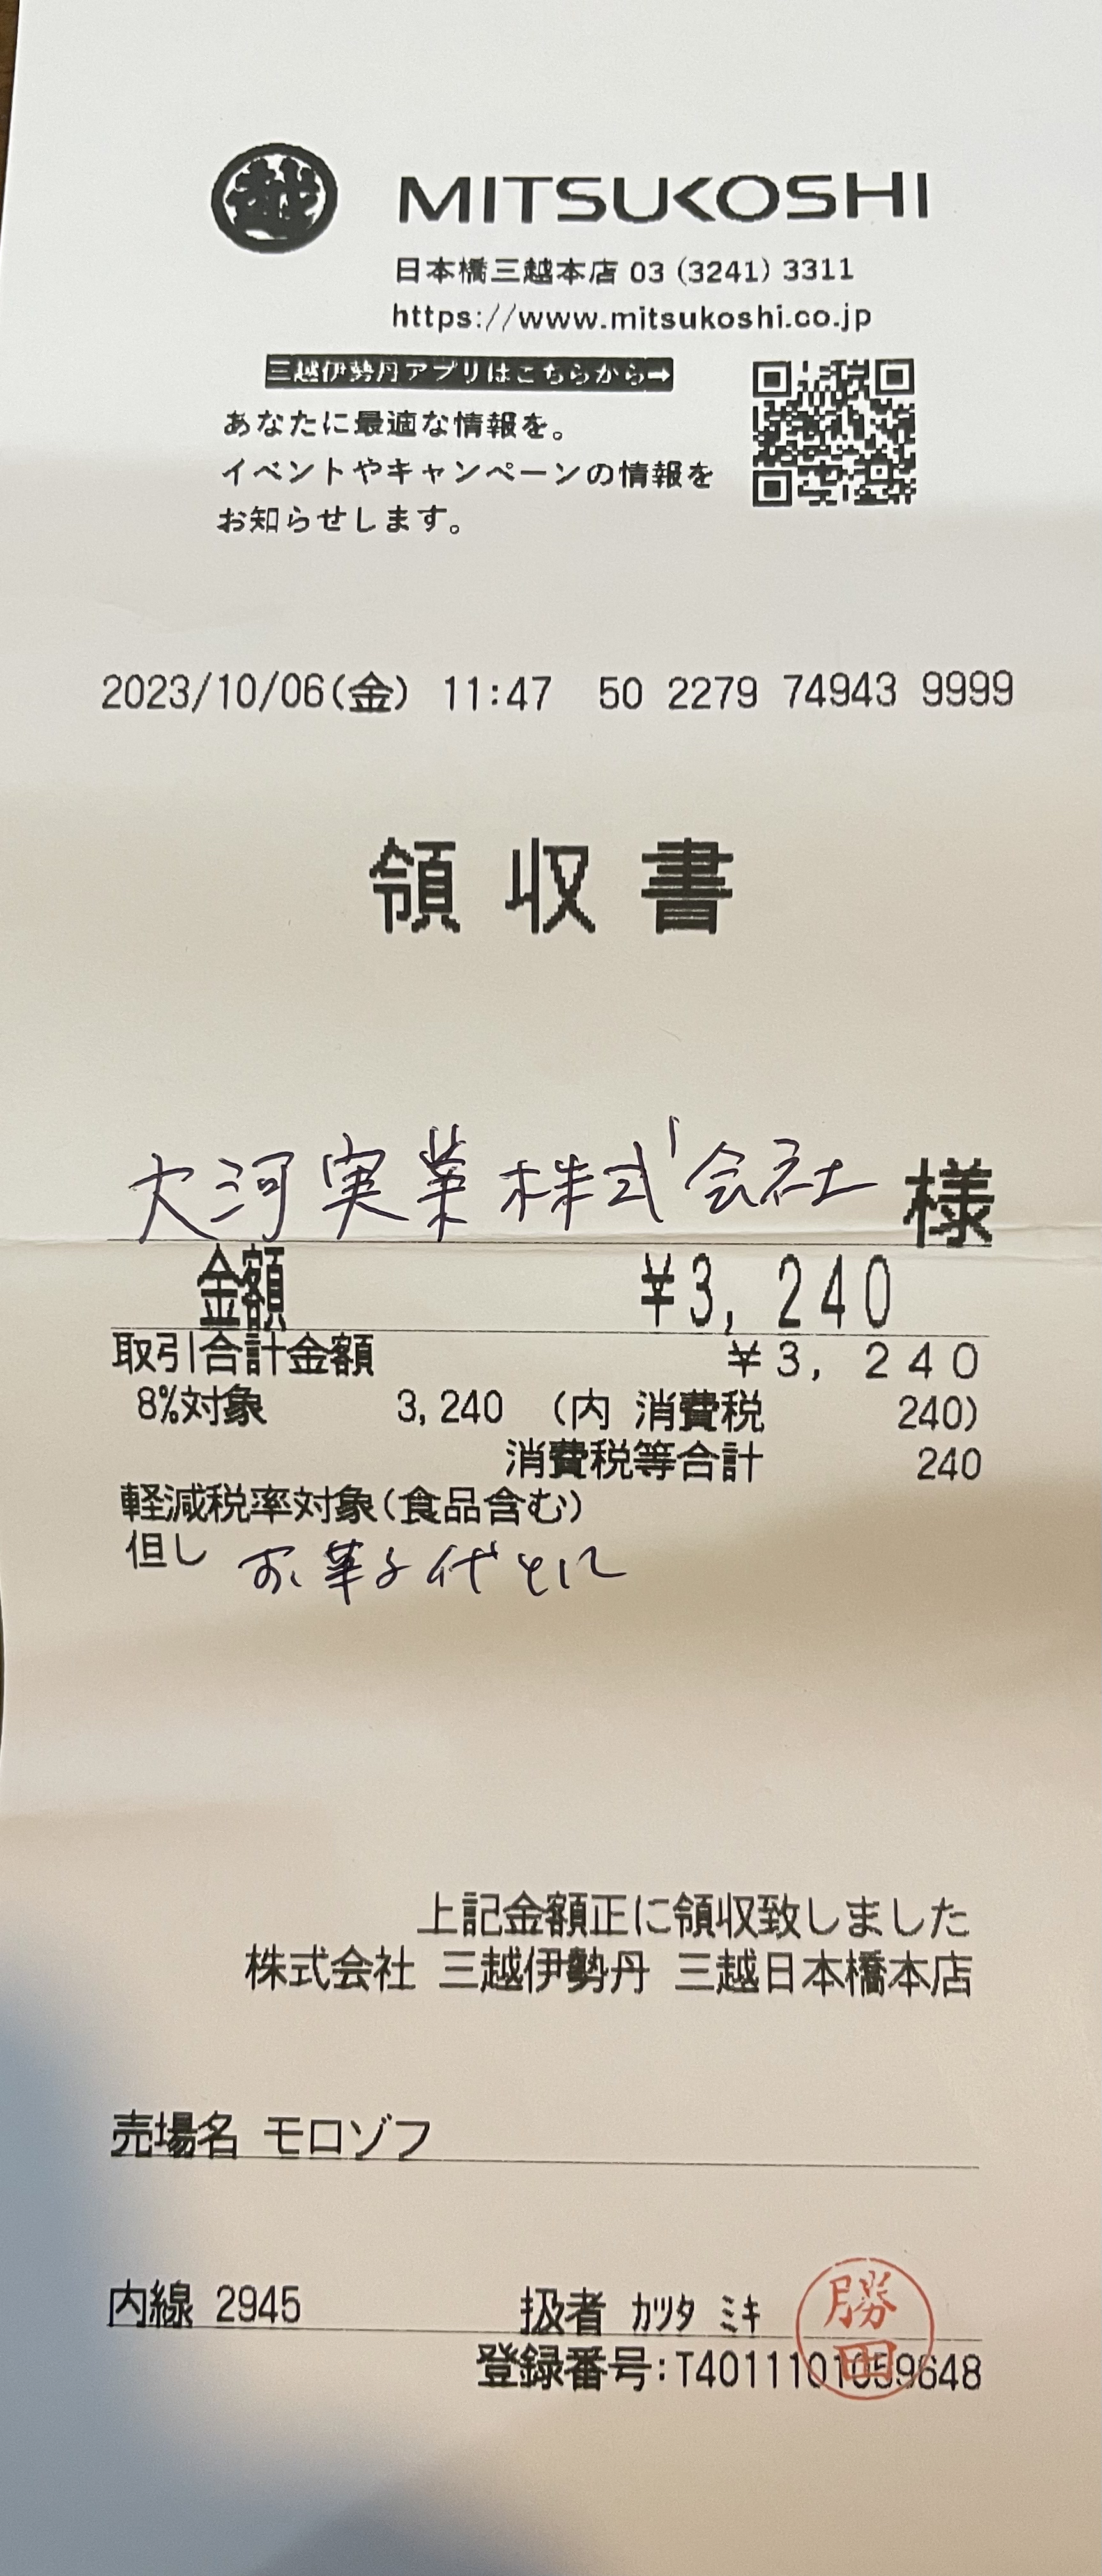 越 MITSUKOSHI
日本橋三越本店 03 (3241) 3311
https://www.mitsukoshi.co.jp
三越伊勢丹アプリはこちらから→
あなたに最適な情報を。
イベントやキャンペーンの情報を
お知らせします。
2023/10/06(金) 11:47 50 2279 74943 9999
領収書
大河実業株式会社 様
金額 ¥3,240
取引合計金額 ¥3,240
8%対象 3,240 (内 消費税 240)
消費税等合計 240
軽減税率対象(食品含む)
但し お菓子代として
上記金額正に領収致しました
株式会社 三越伊勢丹 三越日本橋本店
売場名 モロゾフ
内線 2945 扱者 カツタ ミキ 勝田
登録番号:T4011101059648